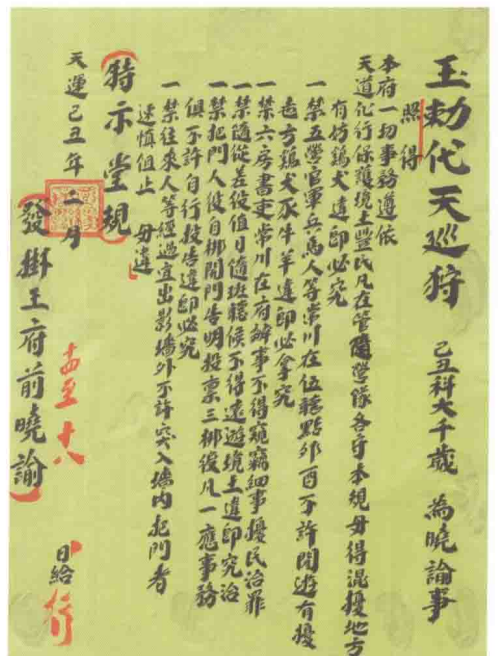 玉勅代天巡狩 己丑科大千歲 為曉諭事
照得
本府一切事務遵依
天道化行保護境土豐民凡在管隨營隊各守本規毋得混擾地方
有妨鷄犬違即必究
一禁五營官軍兵馬人等常川在伍轄點卯酉不許閒遊有擾
壱方鷄犬豕牛羊違即必拿究
一禁六房書吏常川在府辦事不得窺竊細事擾民治罪
一禁隨從差役值日隨班聽候不得遠遊境土違即究治
一禁把門人役自梆開門告明投禀三梆後凡一應事務
俱不許自行投告違即必究
一禁往來人等經過宜出影墻外不許突入墻內把門者
速慎俱止 毋違
特示堂規
天運己丑年 二月 日給
發掛王府前曉諭